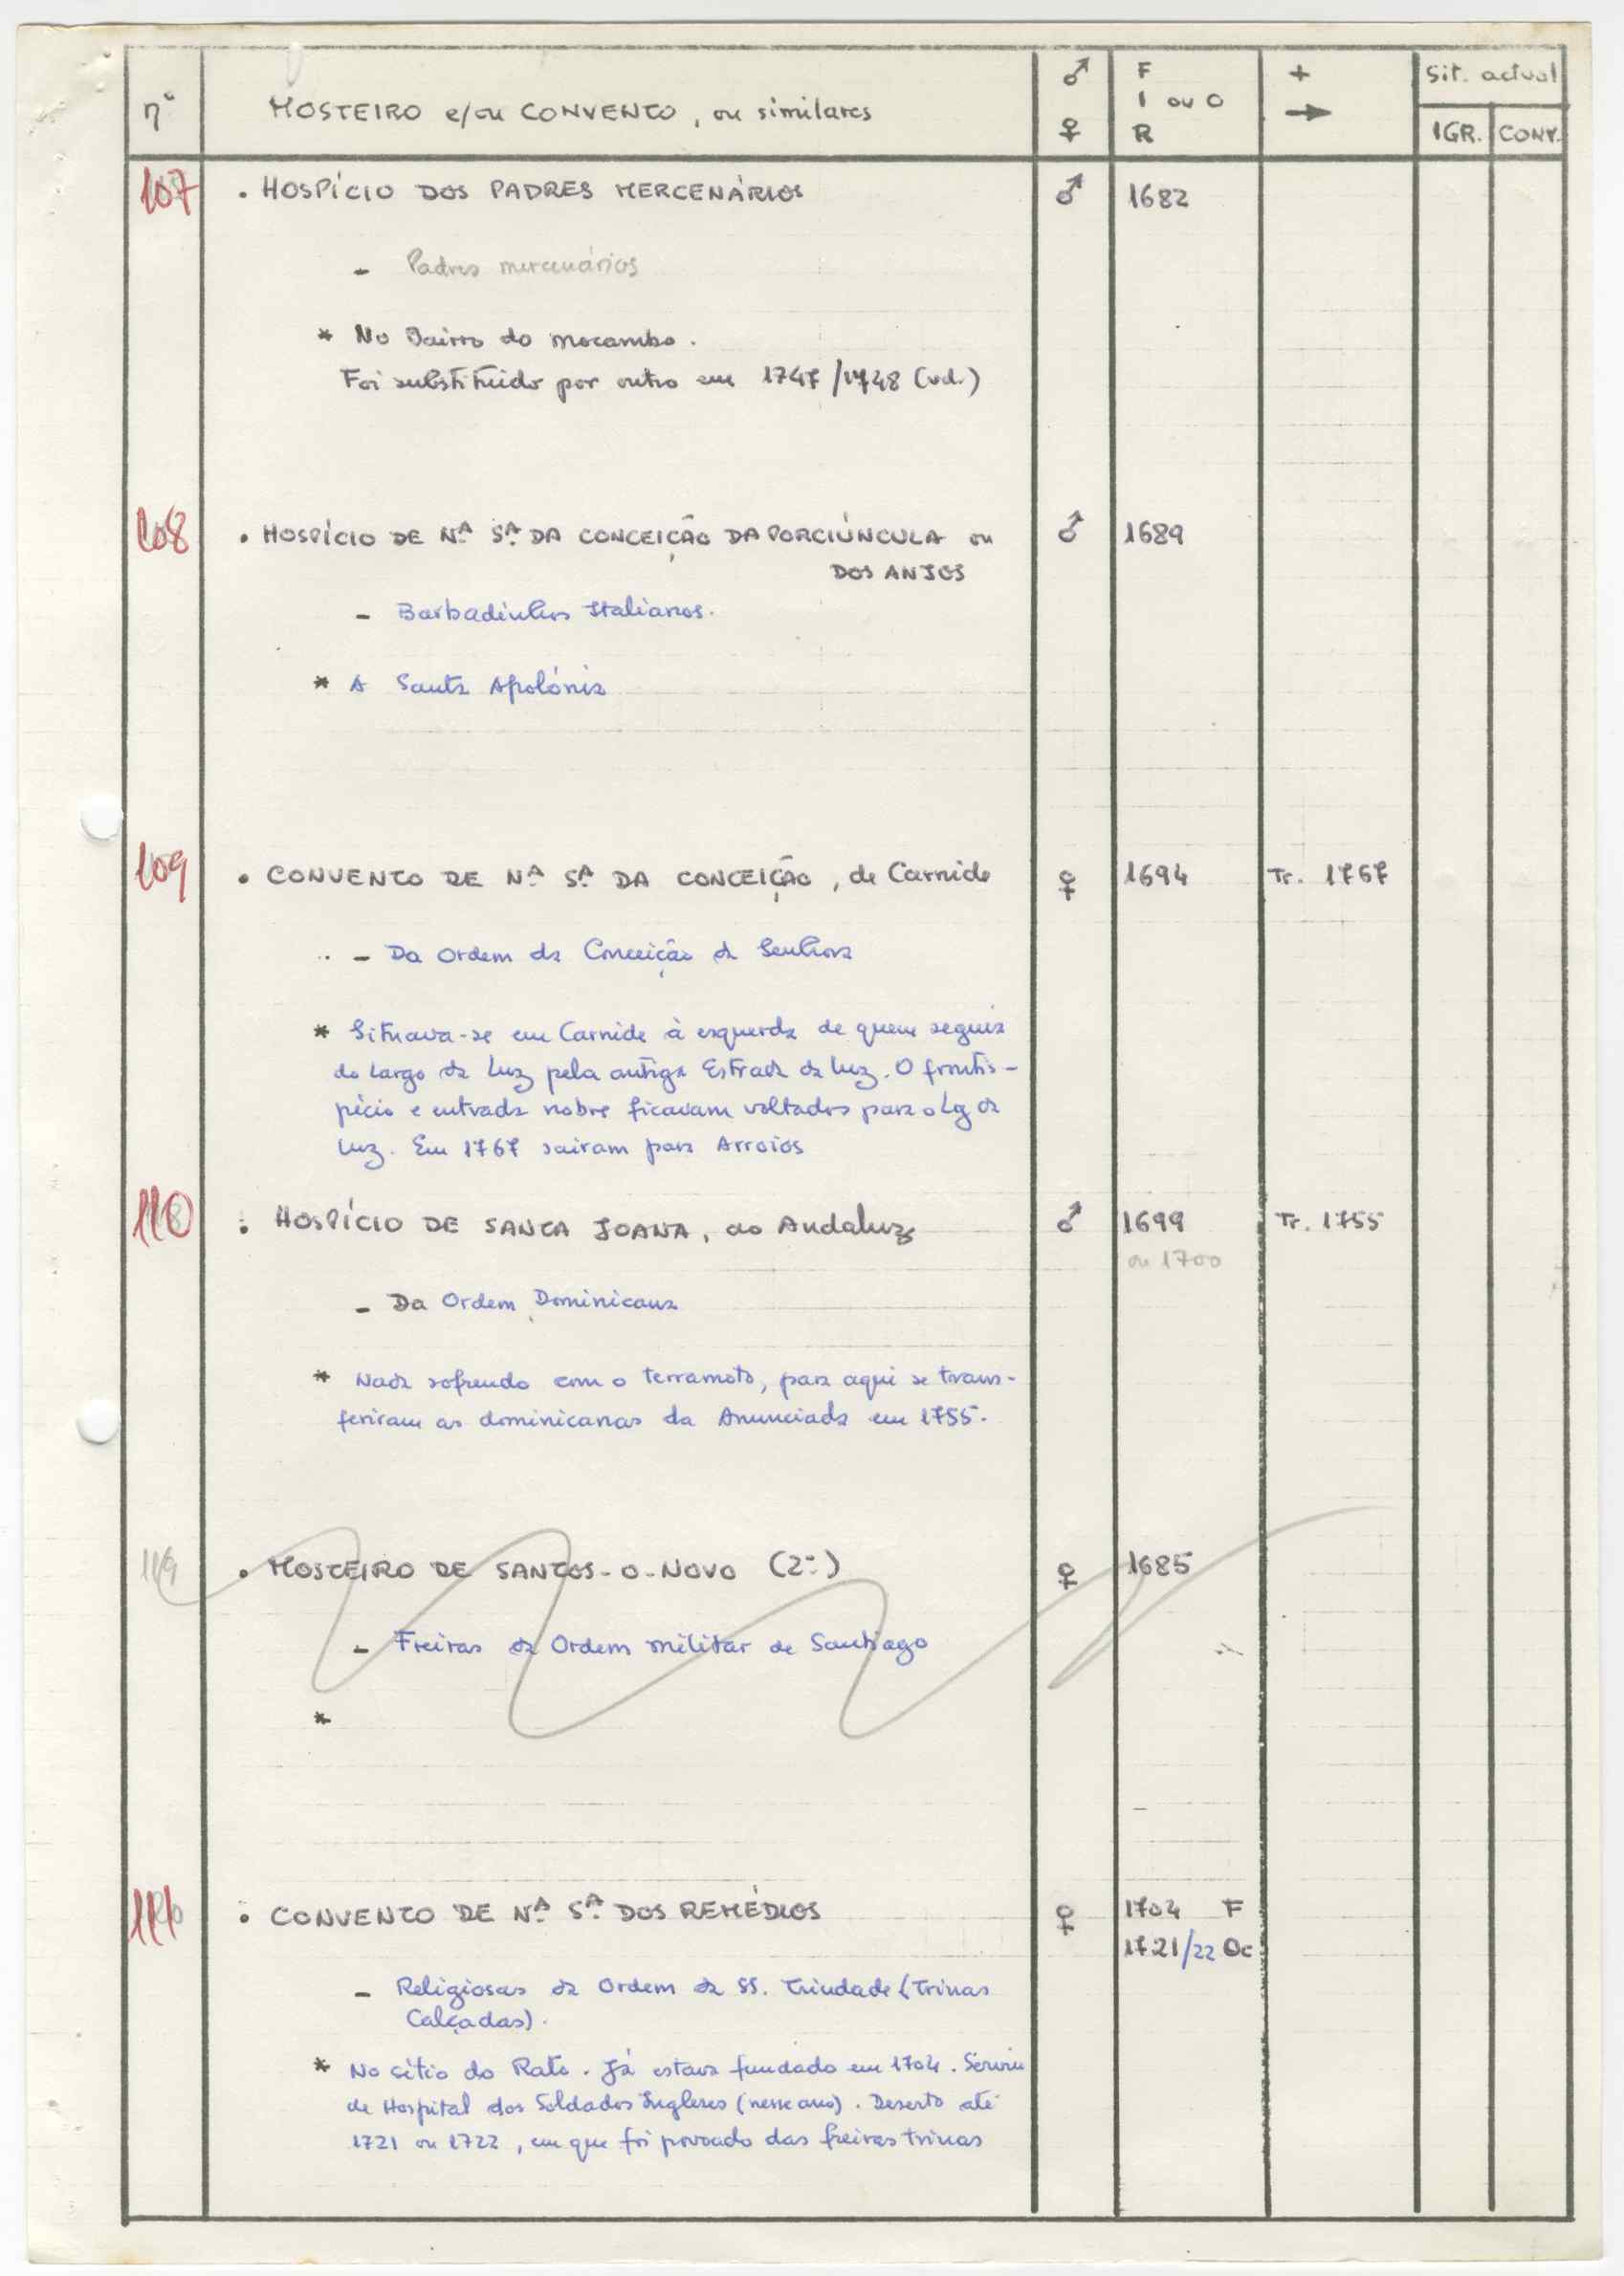 nº
MOSTEIRO e/ou CONVENTO, ou similares
♂
♀
F
I ou O
R
+
→
Sit. actual
IGR. CONV.
107 • HOSPÍCIO DOS PADRES MERCENÁRIOS ♂ 1682
- Padres mercenários
* No Bairro do Mocambo.
Foi substituído por outro em 1747/1748 (vd.)
108 • HOSPÍCIO DE Nª Sª DA CONCEIÇÃO DA PORCIÚNCULA ou ♂ 1689
DOS ANJOS
- Barbadinhos Italianos.
* A Santa Apolónia
109 • CONVENTO DE Nª Sª DA CONCEIÇÃO, de Carnide ♀ 1694 Tr. 1767
- Da Ordem da Conceição da Senhora
* Situava-se em Carnide à esquerda de quem seguia
do Largo da Luz pela antiga Estrada da Luz. O frontis-
pício e entrada nobre ficavam voltados para o Lg da
Luz. Em 1767 sairam para Arroios
110 • HOSPÍCIO DE SANTA JOANA, ao Andaluz ♂ 1699 Tr. 1755
ou 1700
- Da Ordem Dominicana
* Nada sofrendo com o terramoto, para aqui se trans-
feriram as dominicanas da Anunciada em 1755.
119 • MOSTEIRO DE SANTOS-O-NOVO (2º) ♀ 1685
- Freiras da Ordem militar de Santiago
*
111 • CONVENTO DE Nª Sª DOS REMÉDIOS ♀ 1704 F
1721/22 Oc
- Religiosas da Ordem da SS. Trindade (Trinas
Calçadas).
* No sítio do Rato. Já estava fundado em 1704. Serviu
de Hospital dos Soldados Ingleses (nesse ano). Deserto até
1721 ou 1722, em que foi povoado das freiras trinas